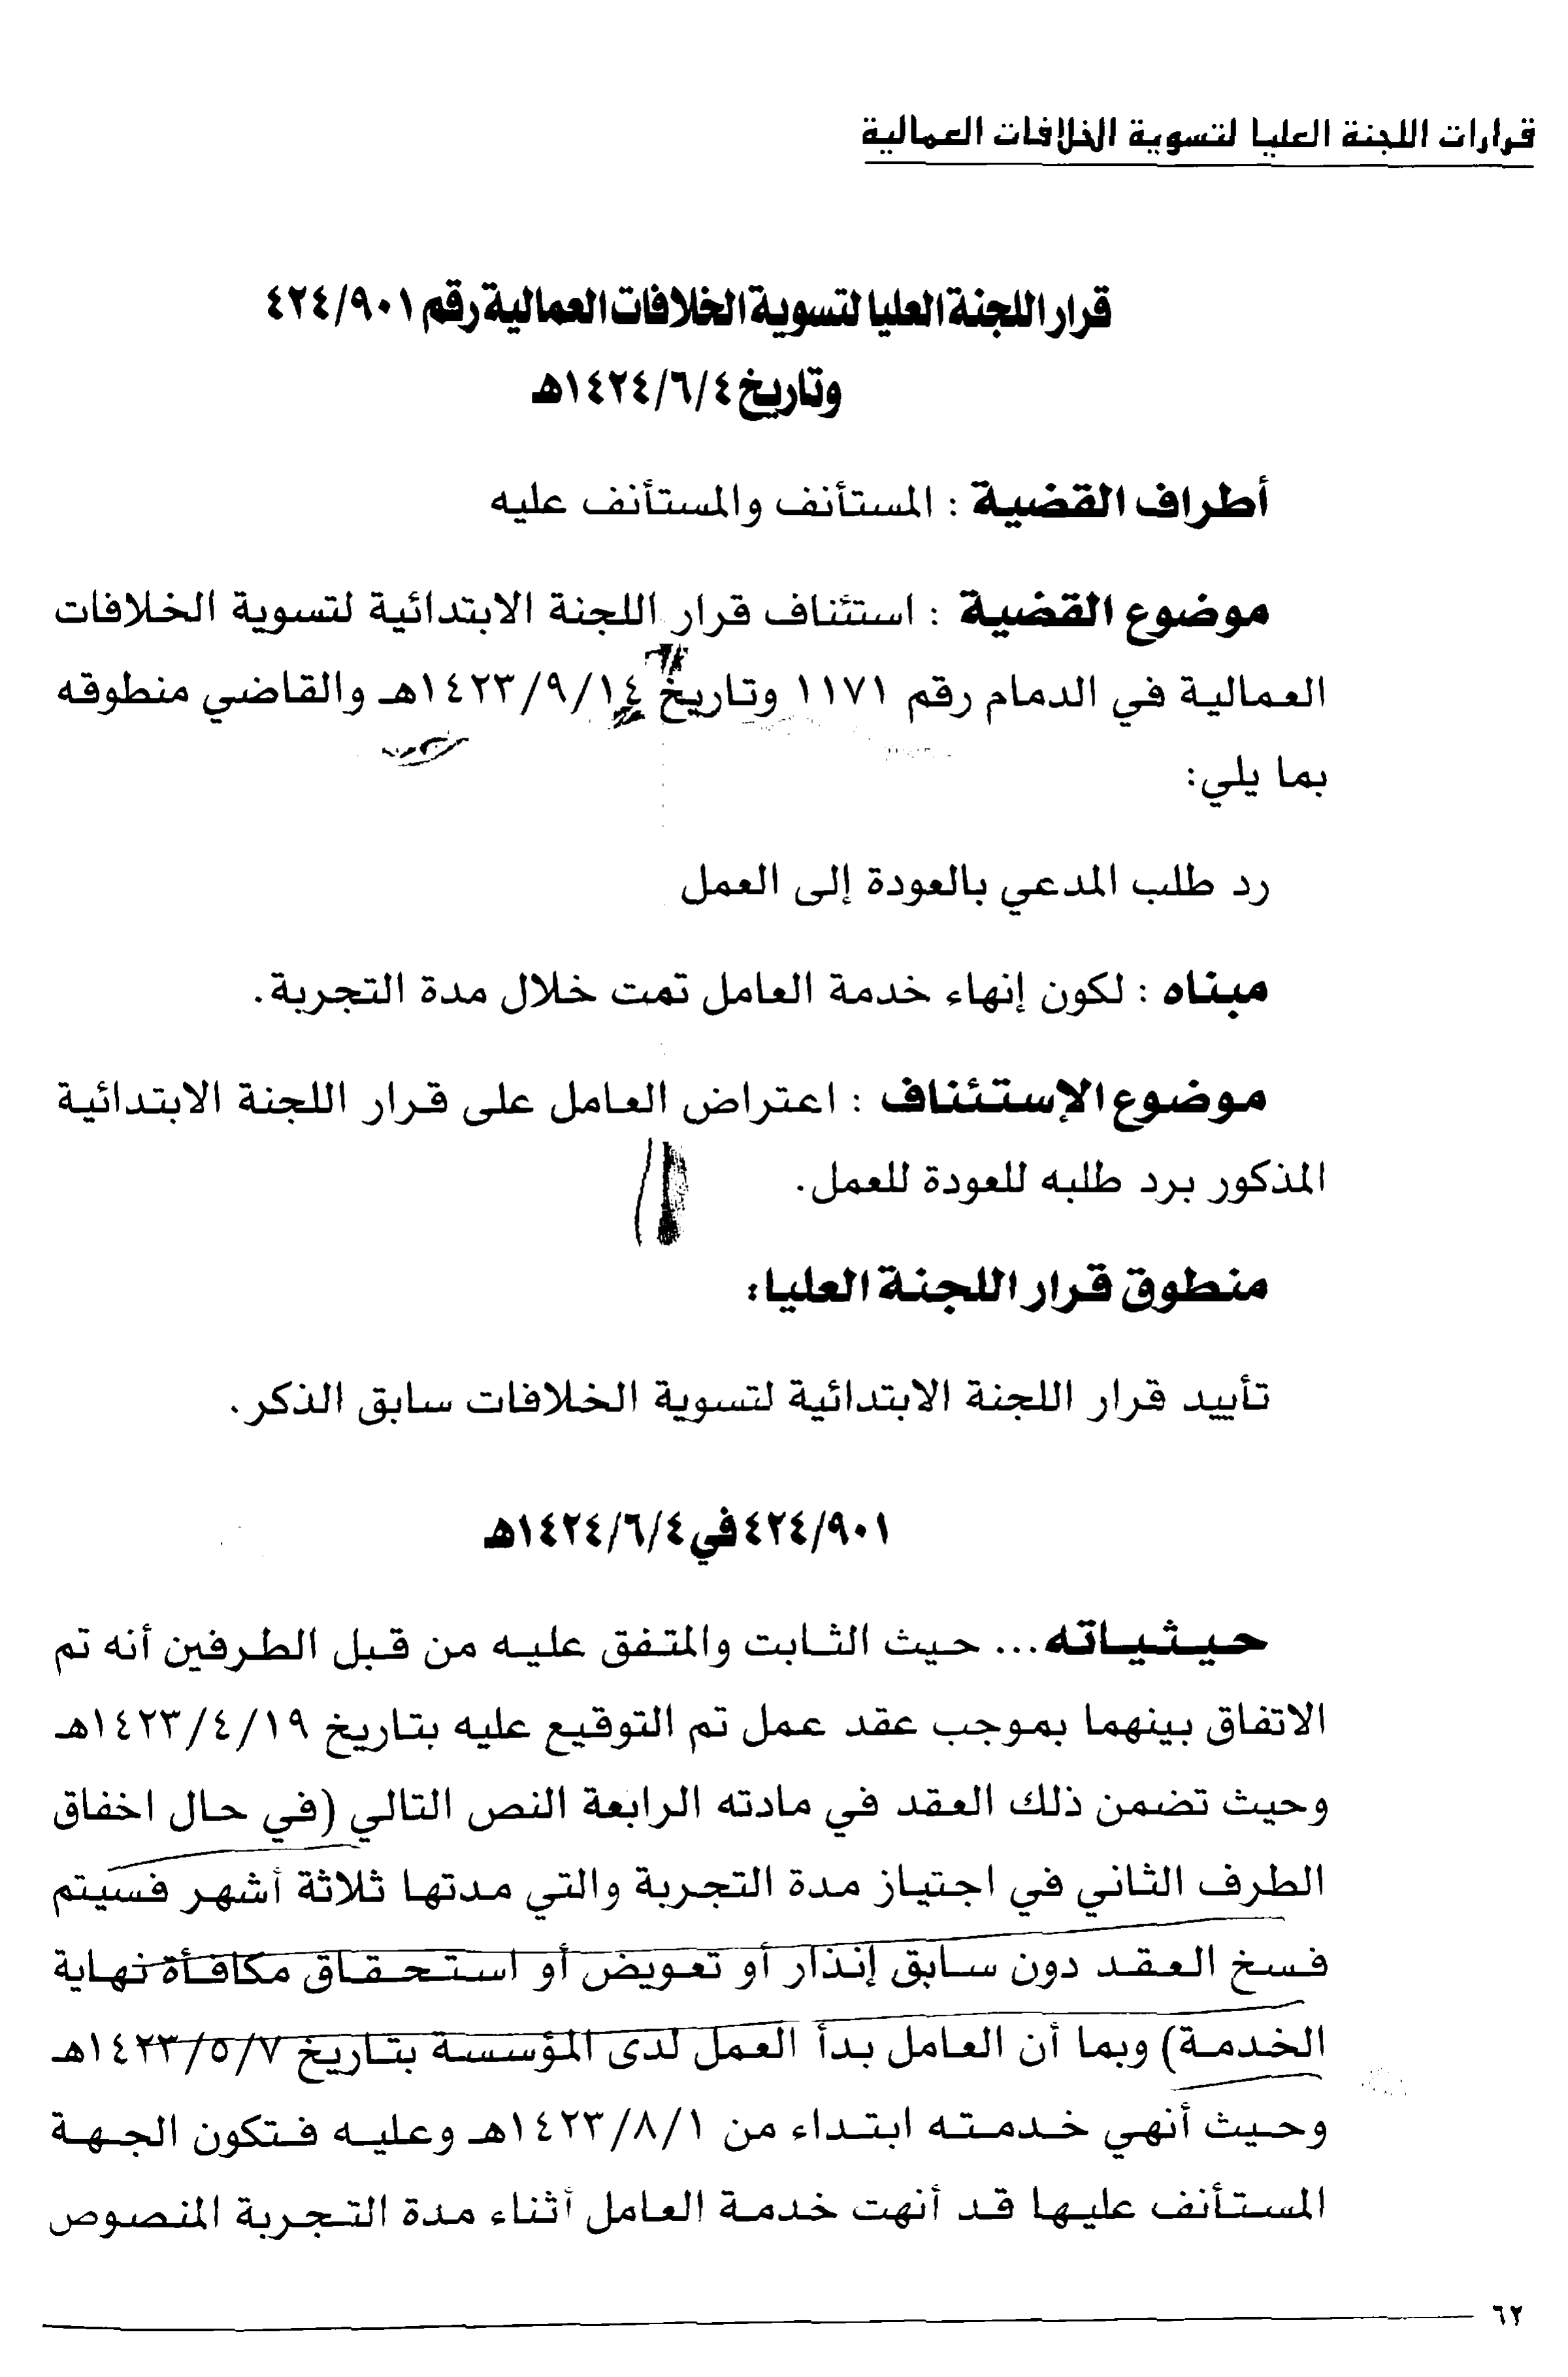 قرارات اللجنة العليا لتسوية الخلافات العمالية
قرار اللجنة العليا لتسوية الخلافات العمالية رقم ٤٢٤/٩٠١
وتاريخ ١٤٢٤/٦/٤هـ
أطراف القضية : المستأنف والمستأنف عليه
موضوع القضية : استئناف قرار اللجنة الابتدائية لتسوية الخلافات
العمالية في الدمام رقم ١١٧١ وتاريخ ١٤٢٣/٩/١٤هـ والقاضي منطوقه
بما يلي:
رد طلب المدعي بالعودة إلى العمل
مبناه : لكون إنهاء خدمة العامل تمت خلال مدة التجربة.
موضوع الإستئناف : اعتراض العامل على قرار اللجنة الابتدائية
المذكور برد طلبه للعودة للعمل.
منطوق قرار اللجنة العليا:
تأييد قرار اللجنة الابتدائية لتسوية الخلافات سابق الذكر.
٤٢٤/٩٠١ في ١٤٢٤/٦/٤هـ
حيثياته... حيث الثابت والمتفق عليه من قبل الطرفين أنه تم
الاتفاق بينهما بموجب عقد عمل تم التوقيع عليه بتاريخ ١٤٢٣/٤/١٩هـ
وحيث تضمن ذلك العقد في مادته الرابعة النص التالي (في حال اخفاق
الطرف الثاني في اجتياز مدة التجربة والتي مدتها ثلاثة أشهر فسيتم
فسخ العقد دون سابق إنذار أو تعويض أو استحقاق مكافأة نهاية
الخدمة) وبما أن العامل بدأ العمل لدى المؤسسة بتاريخ ١٤٢٣/٥/٧هـ
وحيث أنهي خدمته ابتداء من ١٤٢٣/٨/١هـ وعليه فتكون الجهة
المستأنف عليها قد أنهت خدمة العامل أثناء مدة التجربة المنصوص
٦٢